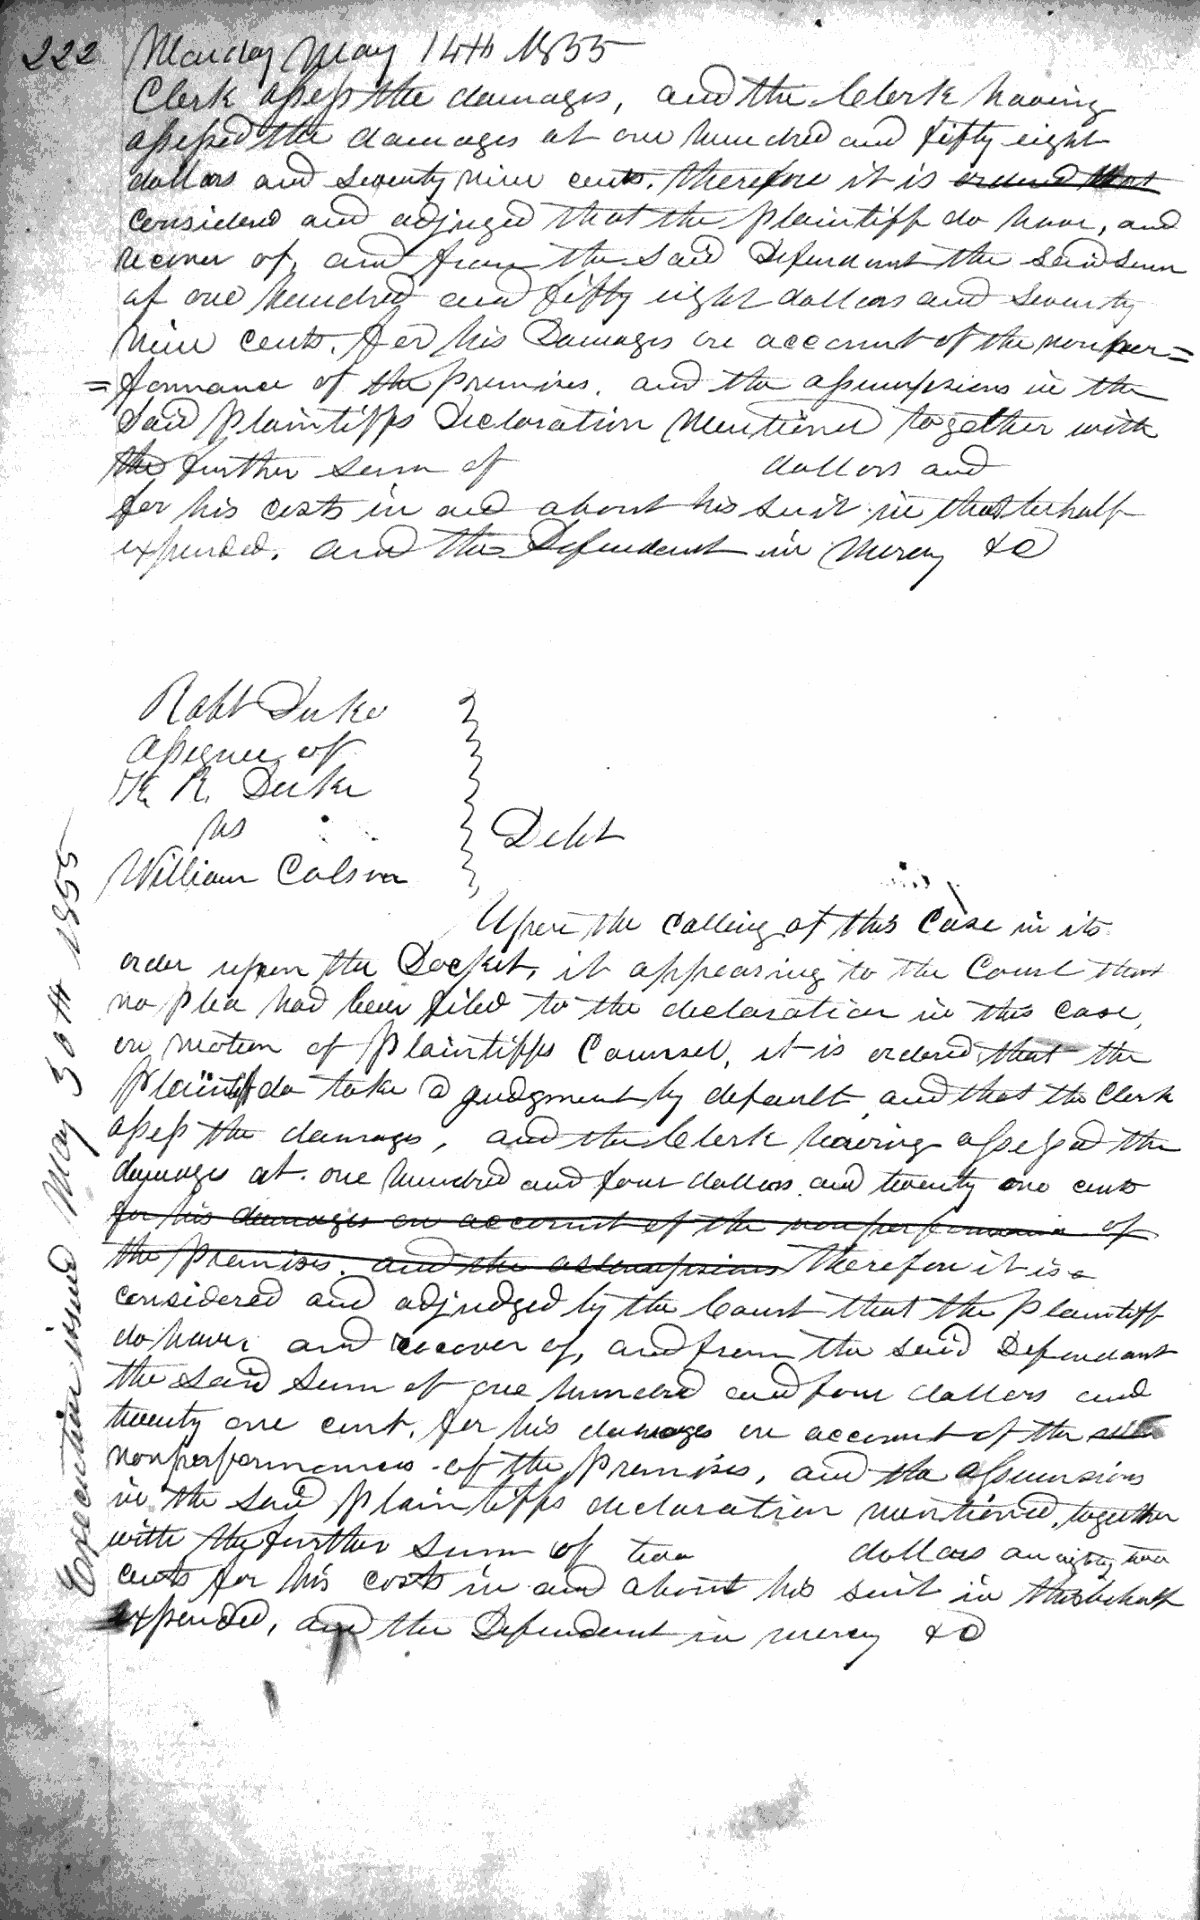 222 Monday May 14th 1855
Clerk assess the damages, and the Clerk having
assessed the damages at one hundred and fifty eight
dollars and seventy nine cents. therefore it is ordered that
considered and adjuged that the plaintiff do have, and
recover of, and from the said Defendant the said sum
of one hundred and fifty eight dollars and seventy
nine cents. for his Damages on account of the nonper=
=formance of the premises. and the assumpsions in the
said plaintiffs Declaration mentioned together with
the further sum of dollars and
for his costs in and about his suit in that behalf
expended. and the Defendant in mercy &c
Robt Duke
assignee of
K. R. Duke
vs
William Colson
Debt
Upon the calling of this Case in its
order upon the Docket, it appearing to the Court that
no plea had been filed to the declaration in this case,
on motion of Plaintiffs Counsel, it is ordered that the
plaintiff do take a judgment by default, and that the Clerk
assess the damages, and the Clerk having assessed the
damages at one hundred and four dollars and twenty one cents
for his damages on account of the nonperformance of
the premises. and the assumpsions therefore it is
considered and adjudged by the Court that the plaintiff
do have and recover of, and from the said Defendant
the said sum of one hundred and four dollars and
twenty one cent. for his damages on account of the
nonperformances of the premises, and the assumsions
in the said plaintiffs declaration mentioned, together
with the further sum of two dollars and eighty two
cents for his costs in and about his suit in this behalf
expended, and the Defendant in mercy &c
Execution issued May 30th 1855